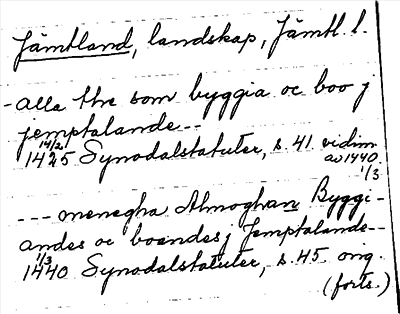 Jämtland, landskap, Jämtl. l.
- alla the som byggia oc boo j
jemptalande --
14/2 1425 Synodalstatuter, s. 41 vidim. av 1440 1/3
--- menegha Almoghan Byggi-
andes oc boandes j Jemptalande --
1/3 1440 Synodalstatuter, s. 45 orig.
(forts.)